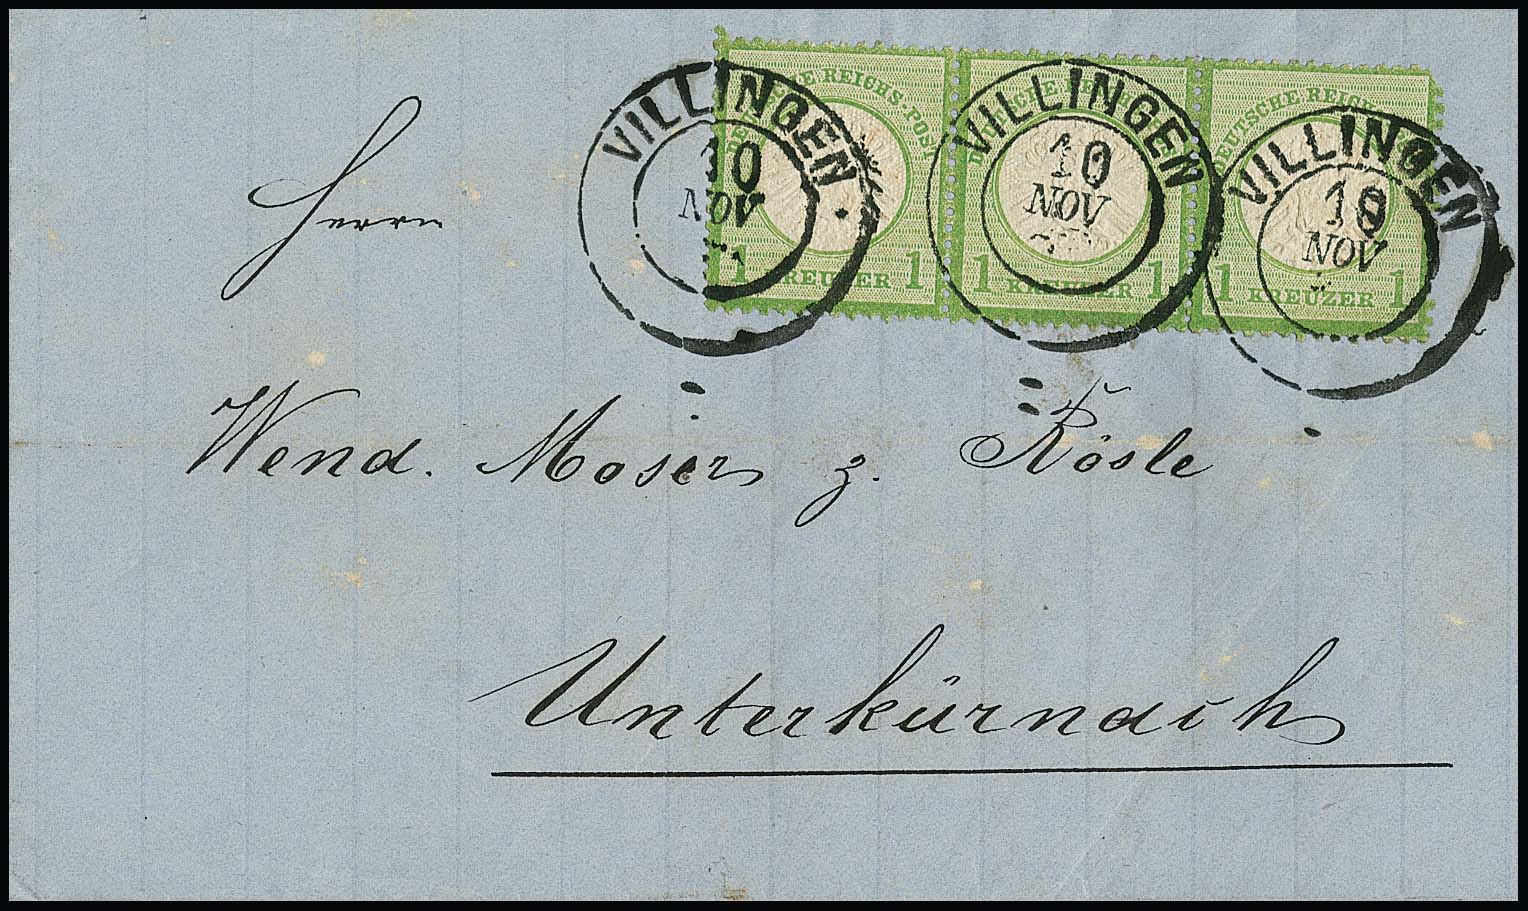 DEUTSCHE REICHS-POST
1 KREUZER 1
DEUTSCHE REICHS
1 KREUZER 1
DEUTSCHE REICHS
1 KREUZER 1
VILLINGEN
10
NOV
VILLINGEN
10
NOV
VILLINGEN
10
NOV
Herrn
Wend. Moser z. Rösle
Unterkürnach